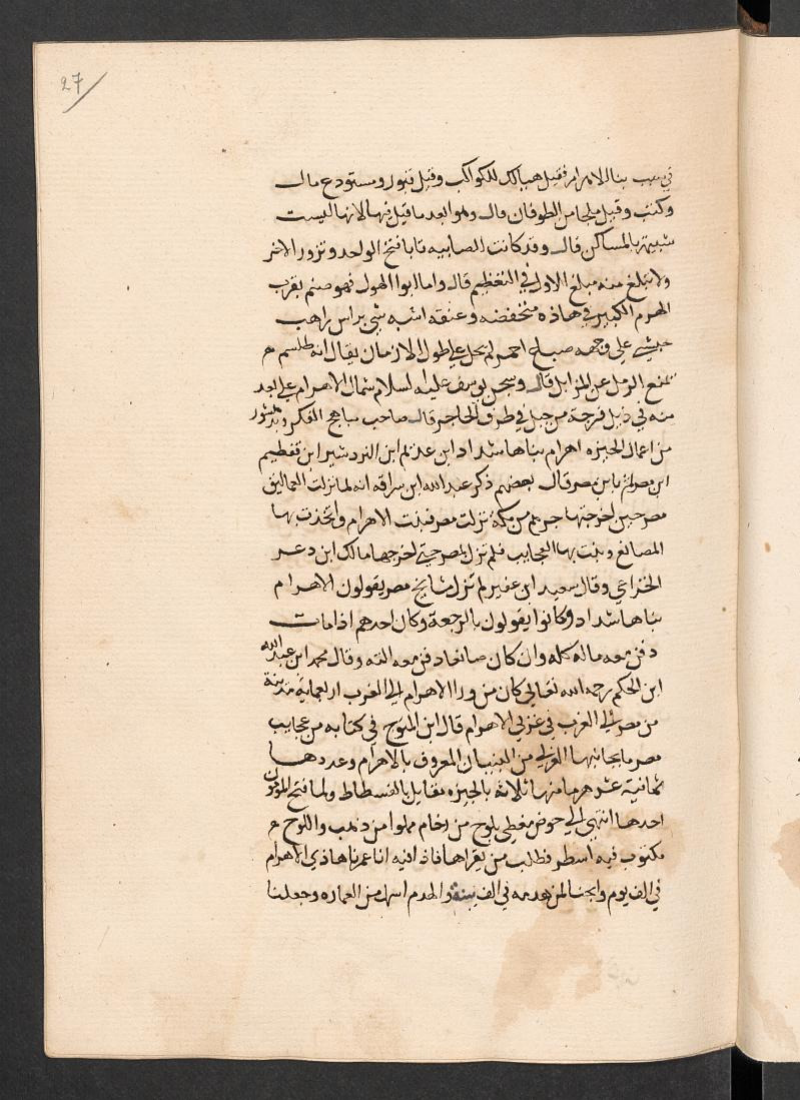 27
في سبب بنا الاهرام فقيل هياكل للكواكب وقيل قبور ومستودع مال
وكتب وقيل ملجا من الطوفان قال وهو ابعد ما قيل فيها لانها ليست
شبيهة بالمساكن قال وقد كانت الصابيه تابا فتح الواحد وتزور الاخر
ولا تبلغ منه مبلغ الاول في التعظيم قال واما ابوا الهول فهو صنم بقرب
الهرم الكبير في هاذه منخفضه وعنقه اشبه شي براس راهب
حبشي على وجهه صباغ احمر لم يحل على طول الازمان يقال انه طلسم
يمنع الرمل عن المزابل قال وسجن يوسف عليه السلام شمال الاهرام على بعد
منه في ذيل فرجة من جبل في طرف الحاجر قال صاحب مباهج الفكر
من اعمال الجيزه اهرام بناها شداد ابن عديم ابن البردشير ابن قفطيم
ابن مصرايم بابن مصر قال بعضهم ذكر عبد الله ابن سراقه انه لما نزلت العماليق
مصر حين اخرجتها جرهم من مكة نزلت مصر فبنت الاهرام واتخذت بها
المصانع وبنت بها العجايب فلم تزل بمصر حتى اخرجها مالك ابن دعر
الخزاعي وقال سعيد ابن عفير لم تزل مشايخ مصر يقولون الاهرام
بناها شداد وكانوا يقولون بالرجعة وكان احدهم اذا مات
دفن معه ماله كله وان كان صانعا دفن معه الته وقال محمد ابن عبد الله
ابن الحكم رحمه الله تعالى كان من ورا الاهرام الى المغرب اربعماية مدينة
من مصر الى الغرب في غربي الاهرام قال ابن المتوج في كتابه من عجايب
مصر ما بجانبها الغربي من البنيان المعروف بالاهرام وعددها
ثمانية عشر هرما منها ثلاثة بالجيزه مقابل بالفسطاط ولما فتح المومون
احدها انتهى الى حوض مغطى بلوح من رخام مملوا من ذهب واللوح
مكتوب فيه اسطر فطلب من يقراها فاذا فيه انا عمرنا هاذي الاهرام
في الف يوم وابحنا لمن يهدمه في الف سنة والهدم اسهل من العماره وجعلنا